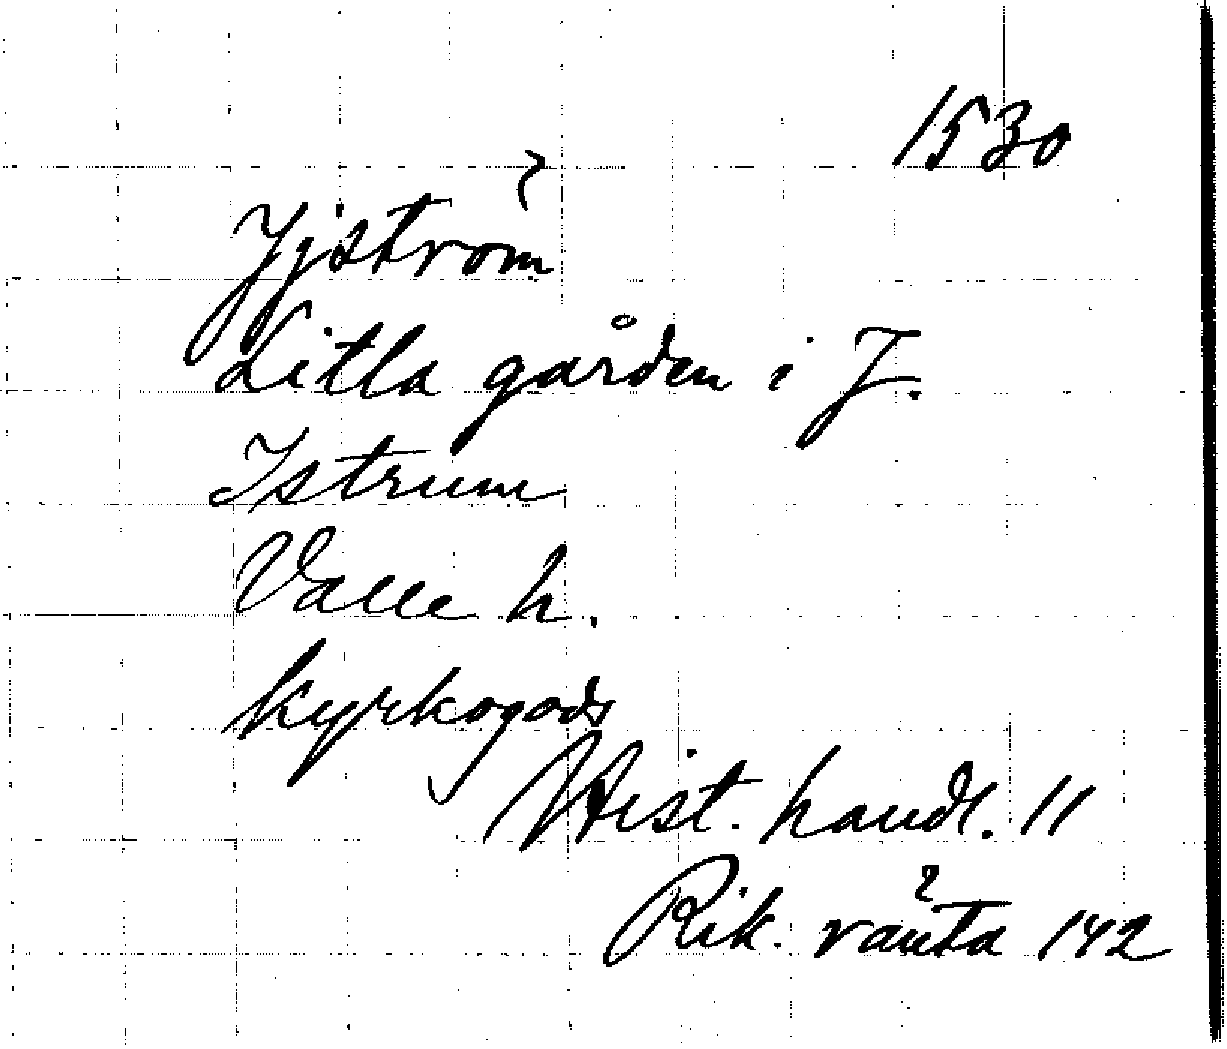 1530
Jjström
Litla gården i J.
Istrum
Valle h.
kyrkogods
Hist. handl. 11
Rik. ränta 142